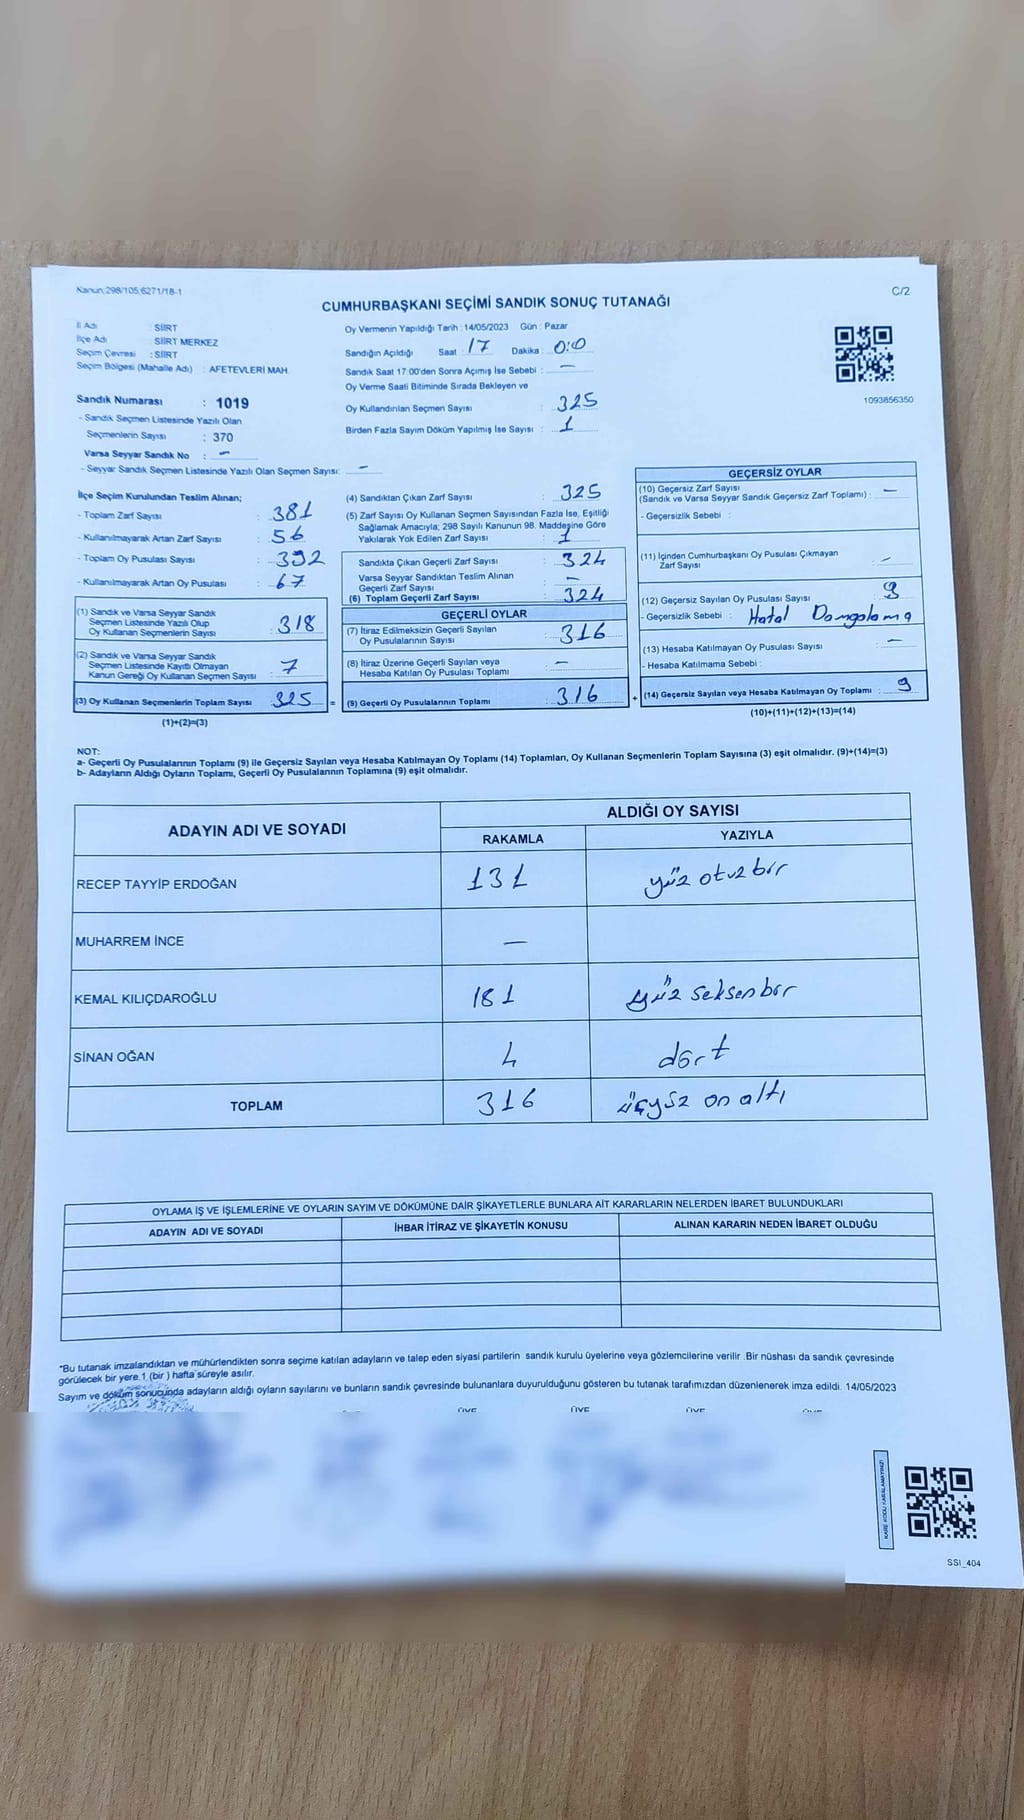 Kanun:298/105;6271/18-1
C/2
CUMHURBAŞKANI SEÇİMİ SANDIK SONUÇ TUTANAĞI
İl Adı : SİİRT
İlçe Adı : SİİRT MERKEZ
Seçim Çevresi : SİİRT
Seçim Bölgesi (Mahalle Adı) : AFETEVLERİ MAH.
Sandık Numarası : 1019
- Sandık Seçmen Listesinde Yazılı Olan
Seçmenlerin Sayısı : 370
Varsa Seyyar Sandık No : —
- Seyyar Sandık Seçmen Listesinde Yazılı Olan Seçmen Sayısı: —
Oy Vermenin Yapıldığı Tarih : 14/05/2023 Gün : Pazar
Sandığın Açıldığı Saat : 17 Dakika : 0:0
Sandık Saat 17:00'den Sonra Açımış İse Sebebi : —
Oy Verme Saati Bitiminde Sırada Bekleyen ve
Oy Kullandırılan Seçmen Sayısı : 325
Birden Fazla Sayım Döküm Yapılmış İse Sayısı : 1
1093856350
İlçe Seçim Kurulundan Teslim Alınan;
- Toplam Zarf Sayısı : 381
- Kullanılmayarak Artan Zarf Sayısı : 56
- Toplam Oy Pusulası Sayısı : 392
- Kullanılmayarak Artan Oy Pusulası : 67
(1) Sandık ve Varsa Seyyar Sandık
Seçmen Listesinde Yazılı Olup
Oy Kullanan Seçmenlerin Sayısı : 318
(2) Sandık ve Varsa Seyyar Sandık
Seçmen Listesinde Kayıtlı Olmayan
Kanun Gereği Oy Kullanan Seçmen Sayısı : 7
(3) Oy Kullanan Seçmenlerin Toplam Sayısı : 325 =
(1)+(2)=(3)
(4) Sandıktan Çıkan Zarf Sayısı : 325
(5) Zarf Sayısı Oy Kullanan Seçmen Sayısından Fazla İse, Eşitliği
Sağlamak Amacıyla; 298 Sayılı Kanunun 98. Maddesine Göre
Yakılarak Yok Edilen Zarf Sayısı : 1
Sandıkta Çıkan Geçerli Zarf Sayısı : 324
Varsa Seyyar Sandıktan Teslim Alınan
Geçerli Zarf Sayısı : —
(6) Toplam Geçerli Zarf Sayısı : 324
GEÇERLİ OYLAR
(7) İtiraz Edilmeksizin Geçerli Sayılan
Oy Pusulalarının Sayısı : 316
(8) İtiraz Üzerine Geçerli Sayılan veya
Hesaba Katılan Oy Pusulaları Toplamı : —
(9) Geçerli Oy Pusulalarının Toplamı : 316 +
GEÇERSİZ OYLAR
(10) Geçersiz Zarf Sayısı
(Sandık ve Varsa Seyyar Sandık Geçersiz Zarf Toplamı) : —
- Geçersizlik Sebebi :
(11) İçinden Cumhurbaşkanı Oy Pusulası Çıkmayan
Zarf Sayısı : —
(12) Geçersiz Sayılan Oy Pusulası Sayısı : 9
- Geçersizlik Sebebi : Hatal Damgalama
(13) Hesaba Katılmayan Oy Pusulası Sayısı : —
- Hesaba Katılmama Sebebi :
(14) Geçersiz Sayılan veya Hesaba Katılmayan Oy Toplamı : 9
(10)+(11)+(12)+(13)=(14)
NOT:
a- Geçerli Oy Pusulalarının Toplamı (9) ile Geçersiz Sayılan veya Hesaba Katılmayan Oy Toplamı (14) Toplamları, Oy Kullanan Seçmenlerin Toplam Sayısına (3) eşit olmalıdır. (9)+(14)=(3)
b- Adayların Aldığı Oyların Toplamı, Geçerli Oy Pusulalarının Toplamına (9) eşit olmalıdır.
ADAYIN ADI VE SOYADI ALDIĞI OY SAYISI
RAKAMLA YAZIYLA
RECEP TAYYİP ERDOĞAN 131 yüz otuzbir
MUHARREM İNCE —
KEMAL KILIÇDAROĞLU 181 yüz seksenbir
SİNAN OĞAN 4 dört
TOPLAM 316 üçyüz on altı
OYLAMA İŞ VE İŞLEMLERİNE VE OYLARIN SAYIM VE DÖKÜMÜNE DAİR ŞİKAYETLERLE BUNLARA AİT KARARLARIN NELERDEN İBARET BULUNDUKLARI
ADAYIN ADI VE SOYADI İHBAR İTİRAZ VE ŞİKAYETİN KONUSU ALINAN KARARIN NEDEN İBARET OLDUĞU
"Bu tutanak imzalandıktan ve mühürlendikten sonra seçime katılan adayların ve talep eden siyasi partilerin sandık kurulu üyelerine veya gözlemcilerine verilir .Bir nüshası da sandık çevresinde
görülecek bir yere 1 (bir ) hafta süreyle asılır.
Sayım ve döküm sonucunda adayların aldığı oyların sayılarını ve bunların sandık çevresinde bulunanlara duyurulduğunu gösteren bu tutanak tarafımızdan düzenlenerek imza edildi. 14/05/2023
ÜYE ÜYE ÜYE
KARE KODU KARALAMAYINIZ!
SSI_404